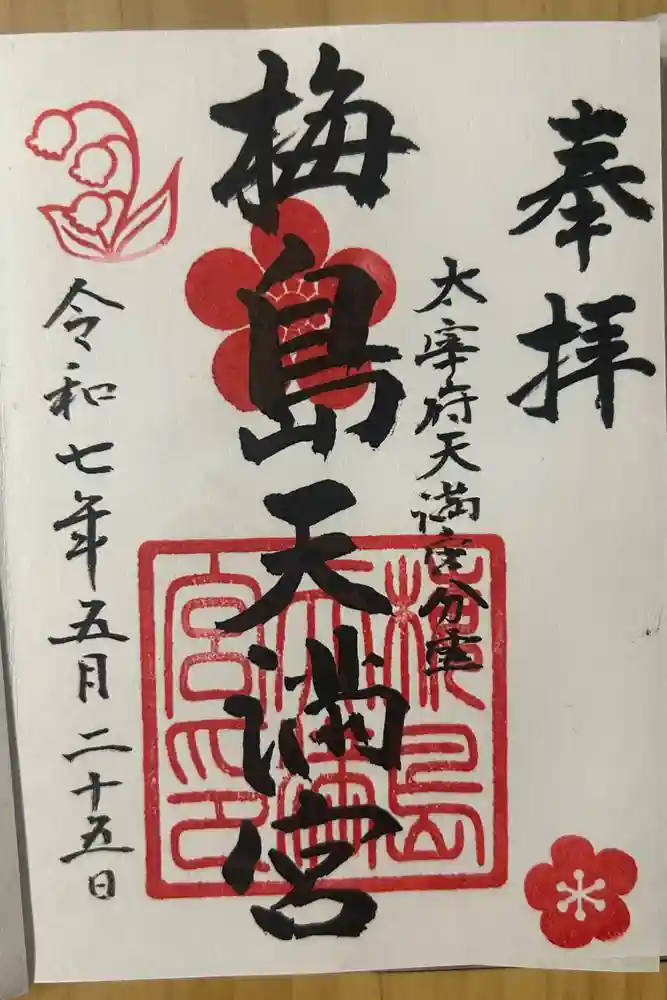 奉拝
太宰府天満宮分霊
梅島天満宮
令和七年五月二十五日
梅島
天満
宮印